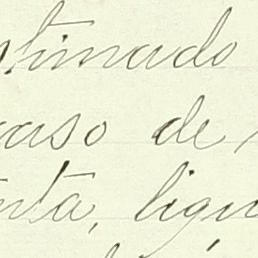 timado
caso de
nta, liqu